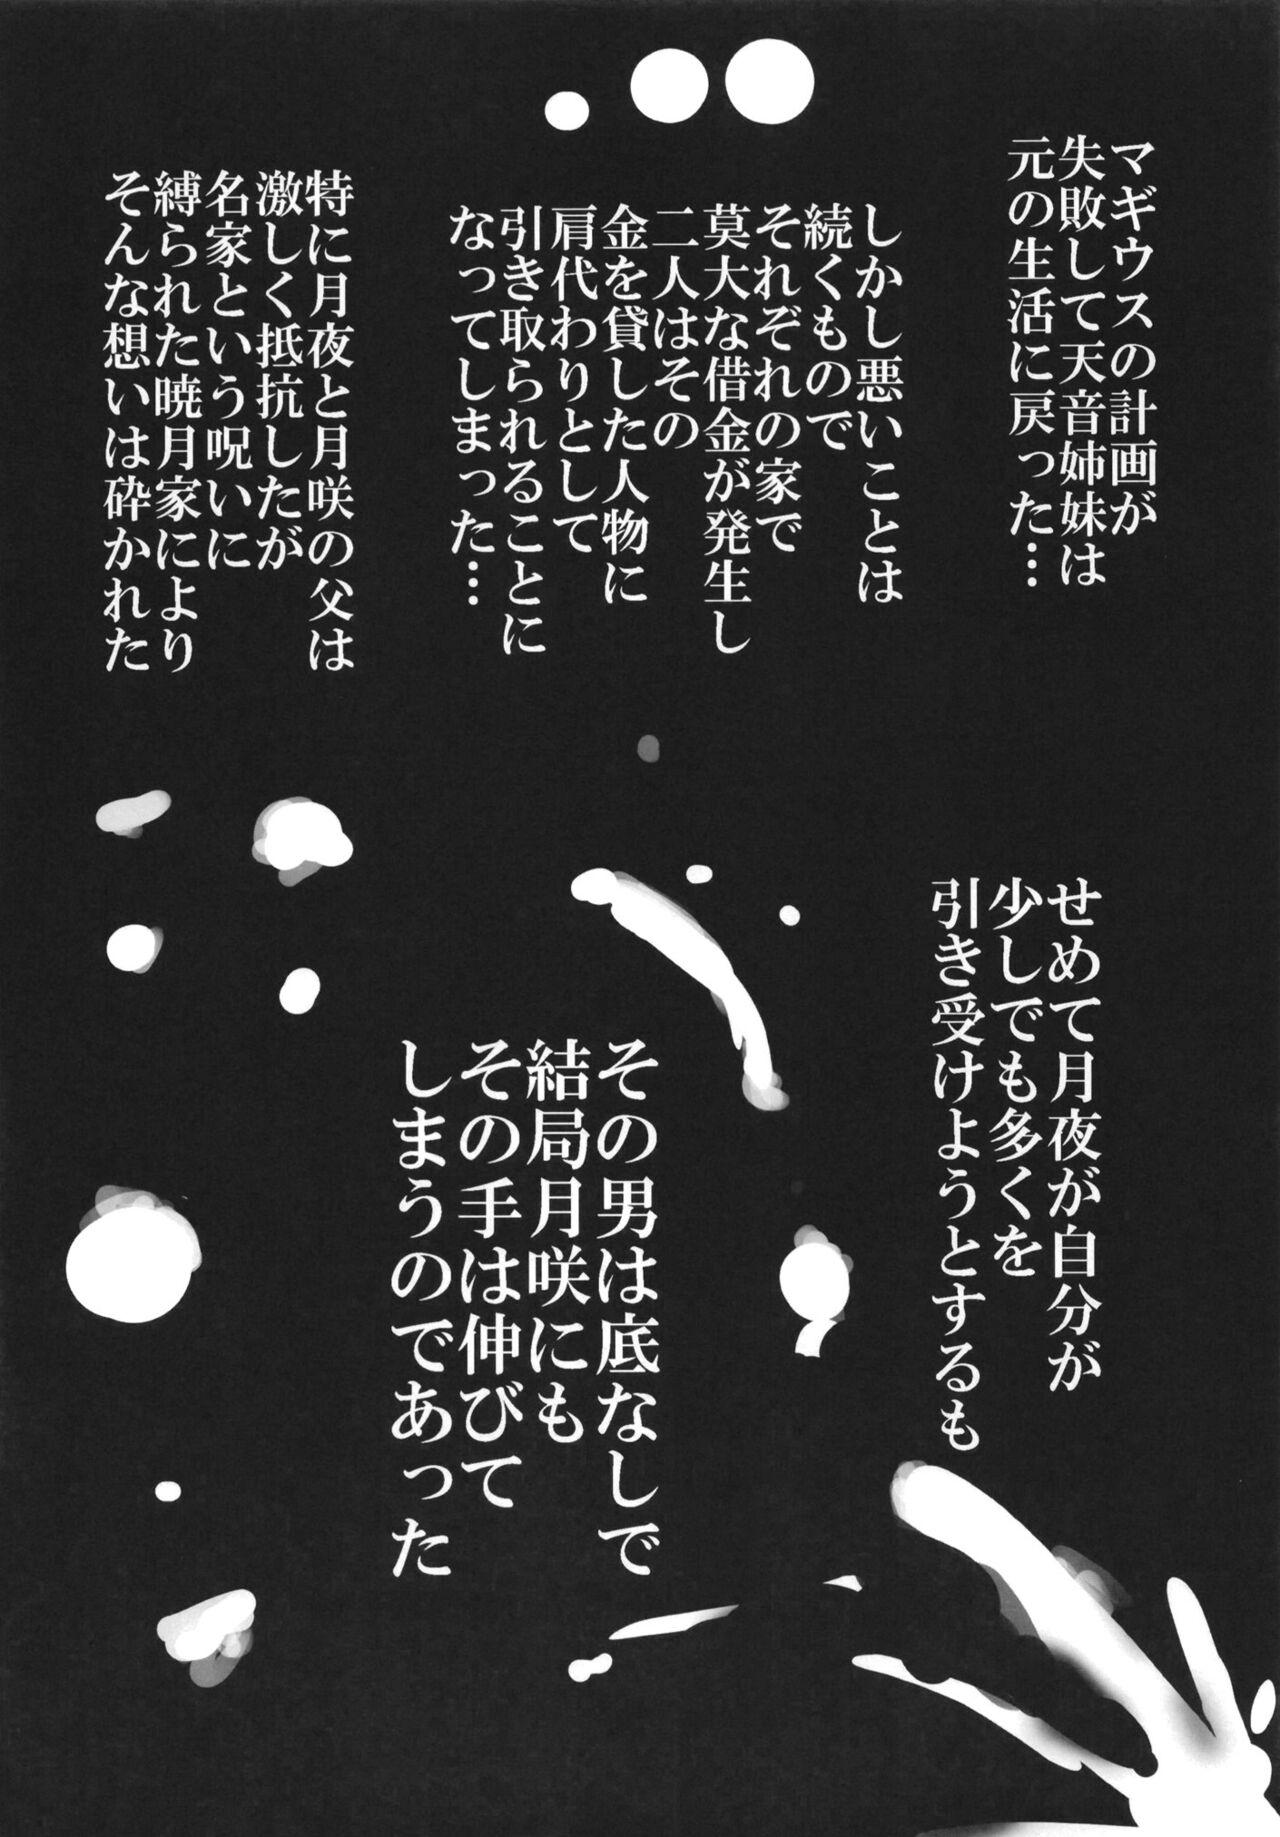 マギウスの計画が
失敗して天音姉妹は
元の生活に戻った…
しかし悪いことは
続くもので
それぞれの家で
莫大な借金が発生し
二人はその
金を貸した人物に
肩代わりとして
引き取られることに
なってしまった…
特に月夜と月咲の父は
激しく抵抗したが
名家という呪いに
縛られた暁月家により
そんな想いは砕かれた
せめて月夜が自分が
少しでも多くを
引き受けようとするも
その男は底なしで
結局月咲にも
その手は伸びて
しまうのであった